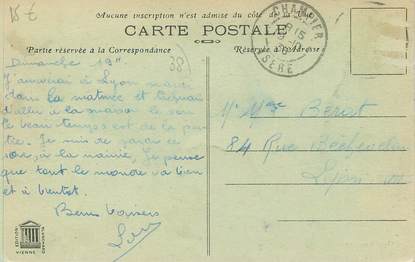 15 €
Aucune inscription n'est admise du côté de
CARTE POSTALE
Partie réservée à la Correspondance
Réservée à l'Adresse
CHAMPIER
ISÈRE
38
Dimanche 19
J'arriverai à Lyon mardi
dans la matinée et
d'aller à la maison le soir
le beau temps est de la par
tie. Je suis de
soir, à la mairie, Je pense
que tout le monde va bien
et à bientôt.
Bons Baisers
Mr Mme
84 Rue Béchevelin
Lyon
EDITION
BLANCHARD
VIENNE